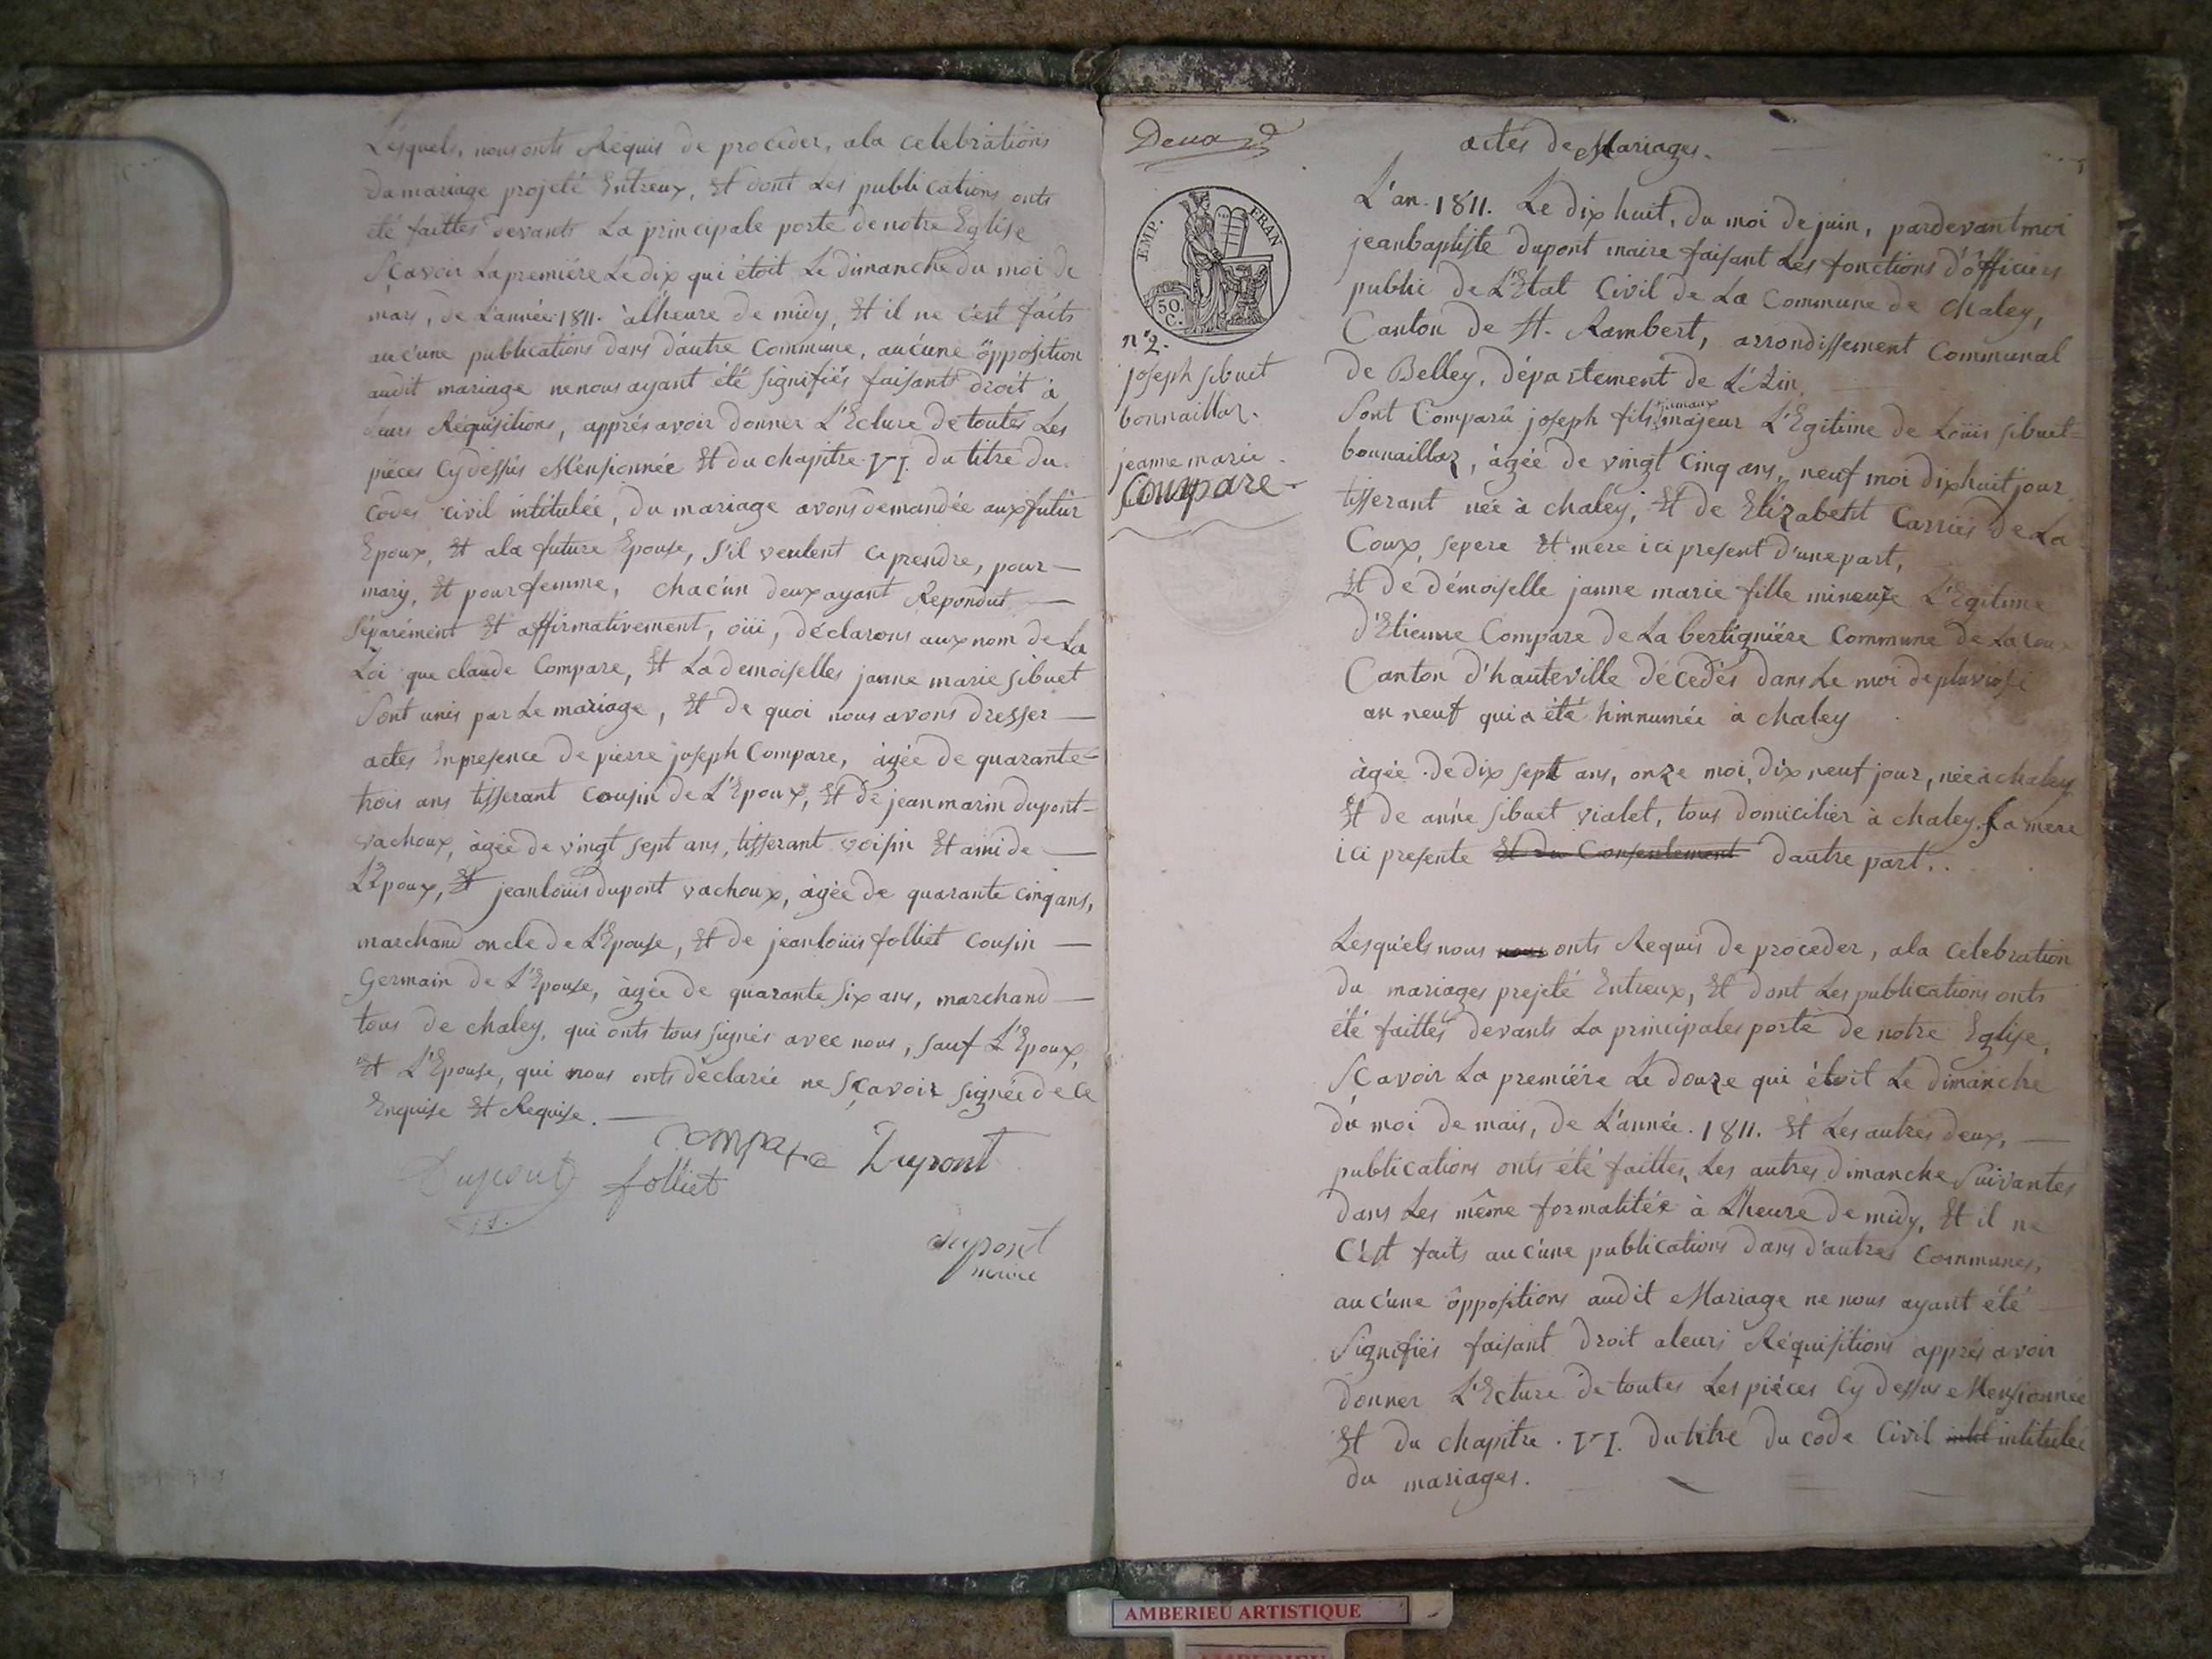 Lesquels, nous onts Réquis de proceder, ala celebrations
du mariage projeté Entreux, Et dont Les publications onts
été faittes devants La principale porte de notre Eglise
Sçavoir La premiére Le dix qui étoit Le dimanche du moi de
mars, de L'année 1811. à l'heure de midy, Et il ne c'est faits
auc'une publications dans d'autre Commune, auc'une öpposition
audit mariage ne nous ayant été signifiés faisants droit à
Leurs Réquisitions, apprés avoir donner L'Ecture de toutes Les
piéces Cy dessus Mensionnée Et du chapitre VI. du titre du
Codes civil intitulée, du mariage avons demandée aux futur
Epoux, Et ala future Epouse, s'il veulent ce prendre, pour —
mary, Et pour femme, chac'un deux ayant Repondut —
Séparément Et affirmativement, oüi, déclarons aux nom de La
Loi que claude Compare, Et La demoiselles janne marie sibuet
Sont unis par Le mariage, Et de quoi nous avons dresser —
actes En presence de pierre joseph Compare, àgée de quarante-
trois ans tisserant Cousin de L'Epoux, Et de jean marin dupont-
vachoux, àgée de vingt sept ans, tisserant voisin Et ami de —
L'Epoux, Et jean loüis dupont vachoux, àgée de quarante cinq ans,
marchand oncle de L'Epouse, Et de jean loüis folliet Cousin —
Germain de L'Epouse, àgée de quarante six ans, marchand —
tous de chaley, qui onts tous signés avec nous, sauf L'Epoux,
Et L'Epouse, qui nous onts déclarée ne Sçavoir signée de ce
Enquise Et Requise. —
Compare Dupont
Dupont folliet
dupont
maire
actes de Mariages.
EMP. FRAN
50.
C.
n°.
2.
joseph sibuet
bonnaillaz.
jeanne marie
Compare
L'an. 1811. Le dix huit, du moi de juin, pardevant moi
jean baptiste dupont maire faisant Les fonctions d'öfficiers
public de L'Etat Civil de La Commune de chaley,
Canton de St. Rambert, arrondissement Communal
de Belley, département de L'Ain
jumaux
Sont Comparû joseph fils majeur L'Egitime de Loüis sibuet-
bonnaillaz, àgée de vingt cinq ans, neuf moi dix huit jour
tisserant née à chaley, Et de Elizabeth Carrier de La
Coux, se pere Et mere ici present d'une part,
Et de démoiselle janne marie fille mineure L'Egitime
d'Etienne Compare de La bertigniére Commune de La Coux
Canton d'hauteville décedés dans Le moi de pluviose
an neuf qui a été hinnumée à chaley
àgée de dix sept ans, onze moi, dix neuf jour, née à chaley
Et de anne sibuet vialet, tous domicilier à chaley. La mere
ici presente Et du Consentement dautre part..
Lesqu'els nous nous onts Requis de proceder, ala celebration
du mariages prejeté Entreux, Et dont Les publications onts
été faittes devants La principales porte de notre Eglise,
Sçavoir La premiére Le douze qui étoit Le dimanche
du moi de mais, de L'année. 1811. Et Les autres deux, —
publications onts été faittes, Les autres dimanche Suivantes
dans Les même formalitée à L'heure de midy, Et il ne
C'est faits auc'une publications dans d'autres Communes,
auc'une öppositions audit Mariage ne nous ayant été
Signifiés faisant droit aleurs Réquisitions apprés avoir
donner L'Ecture de toutes Les piéces Cy dessus Mensionnée
Et du chapitre . VI. du titre du code Civil intitulée
du mariages.
AMBERIEU ARTISTIQUE